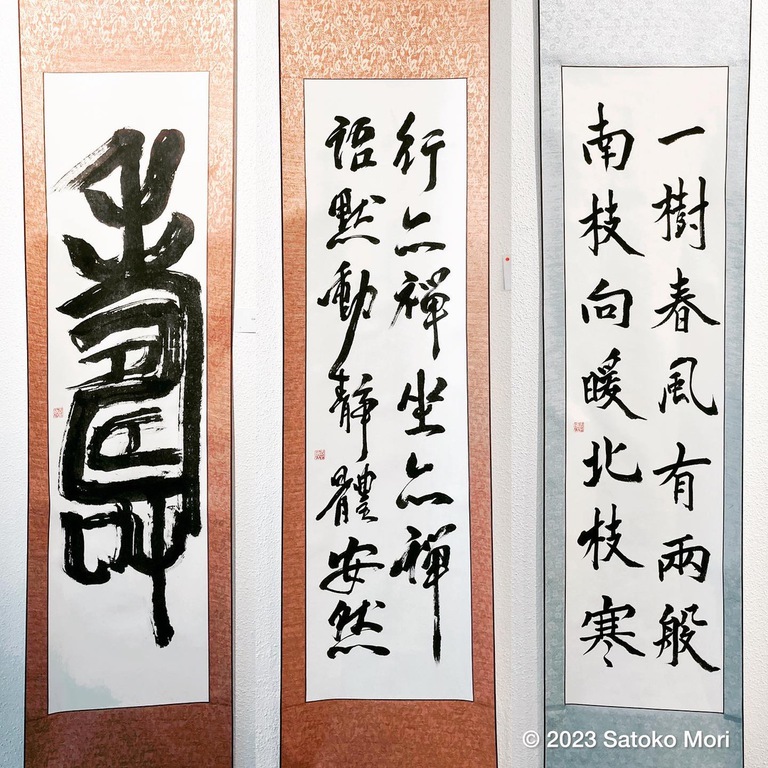 一樹春風有兩般
南枝向暖北枝寒
行亦禪坐亦禪
語黙動静體安然
壽
© 2023 Satoko Mori